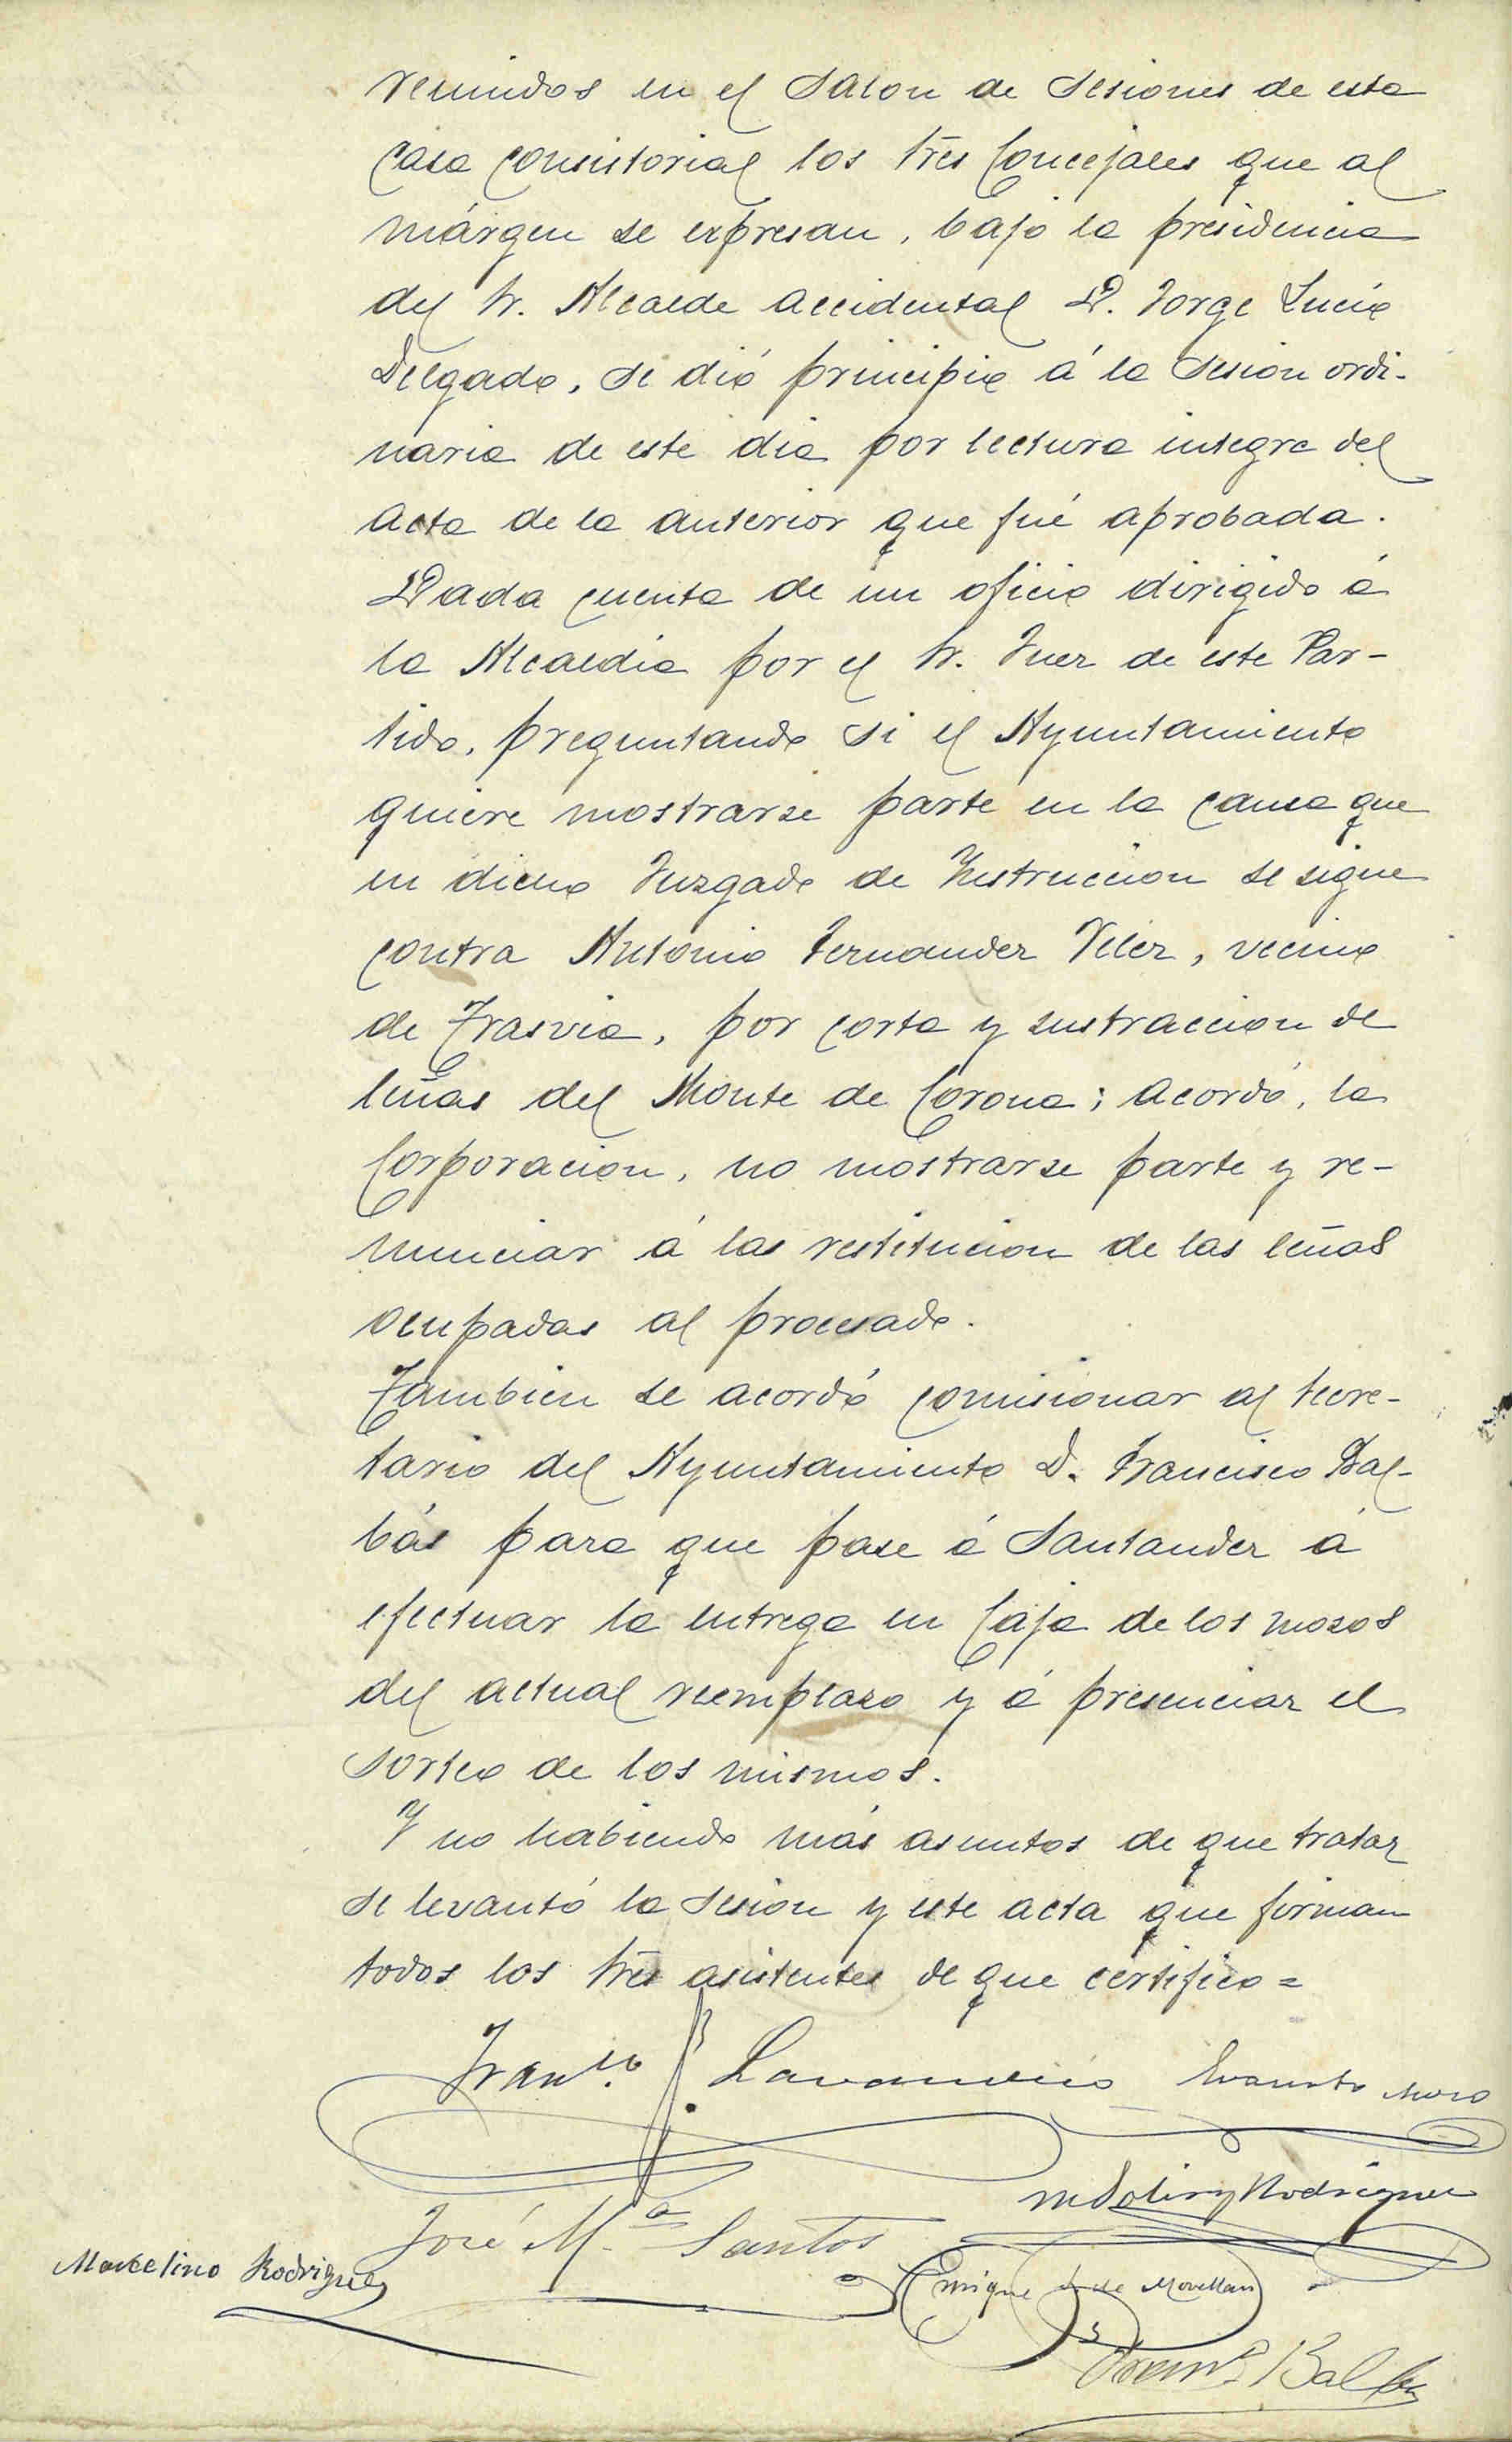 reunidos en el Salon de Sesiones de esta
Casa Consistorial los Sres Concejales que al
márgen se expresan, bajo la presidencia
del Sr. Alcalde accidental D. Jorge Lucio
Delgado, se dió principio á la Sesion ordi-
naria de este dia por lectura integra del
acta de la anterior que fué aprobada.
Dada cuenta de un oficio dirigido á
la Alcaldia por el Sr. Juez de este Par-
tido, preguntando si el Ayuntamiento
quiere mostrarse parte en la causa que
en dicho Juzgado de Instruccion se sigue
contra Antonio Fernandez Velez, vecino
de Trasvia, por corta y sustraccion de
leñas del Monte de Corona; acordó, la
Corporacion, no mostrarse parte y re-
nunciar á las restitucion de las leñas
ocupadas al procesado.
Tambien se acordó comisionar al Secre-
tario del Ayuntamiento D. Francisco Bal-
bás para que pase á Santander á
efectuar la entrega en Caja de los mozos
del actual reemplazo y á presenciar el
sorteo de los mismos.
Y no habiendo más asuntos de que tratar
se levantó la Sesion y este acta que firman
todos los Sres asistentes de que certifico=
Franco. Evaristo
M Rodriguez
José M.a Santos
Marcelino Rodriguez
Enrique de Movellan
Franco Balbás